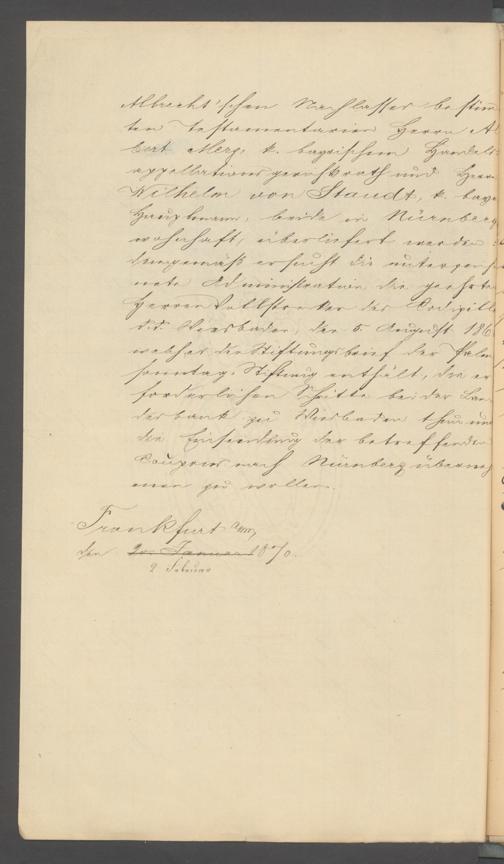 Albrecht'schen Nachlasses bestimm
ten Testamentarien Herrn Al
bert Merz, k. bayrischem Handels
appellationsgerichtsrath und Herrn
Wilhelm von Staudt, k. baye
Hauptmann, beide in Nürnberg
wohnhaft, überliefert werden
demgemäß ersucht die unterzeich
nete Administration die geehrten
Herren Vollstrecker des Codizills
d.d. Wiesbaden, den 5. August 186
welches den Stiftungsbrief der Palm
sonntag-Stiftung enthält, die er
forderlichen Schritte bei der Lan
desbank zu Wiesbaden thun und
die Einsendung der betreffenden
Coupons nach Nürnberg überneh
men zu wollen.
Frankfurt a/m,
den 20. Januar 1870.
2. Februar